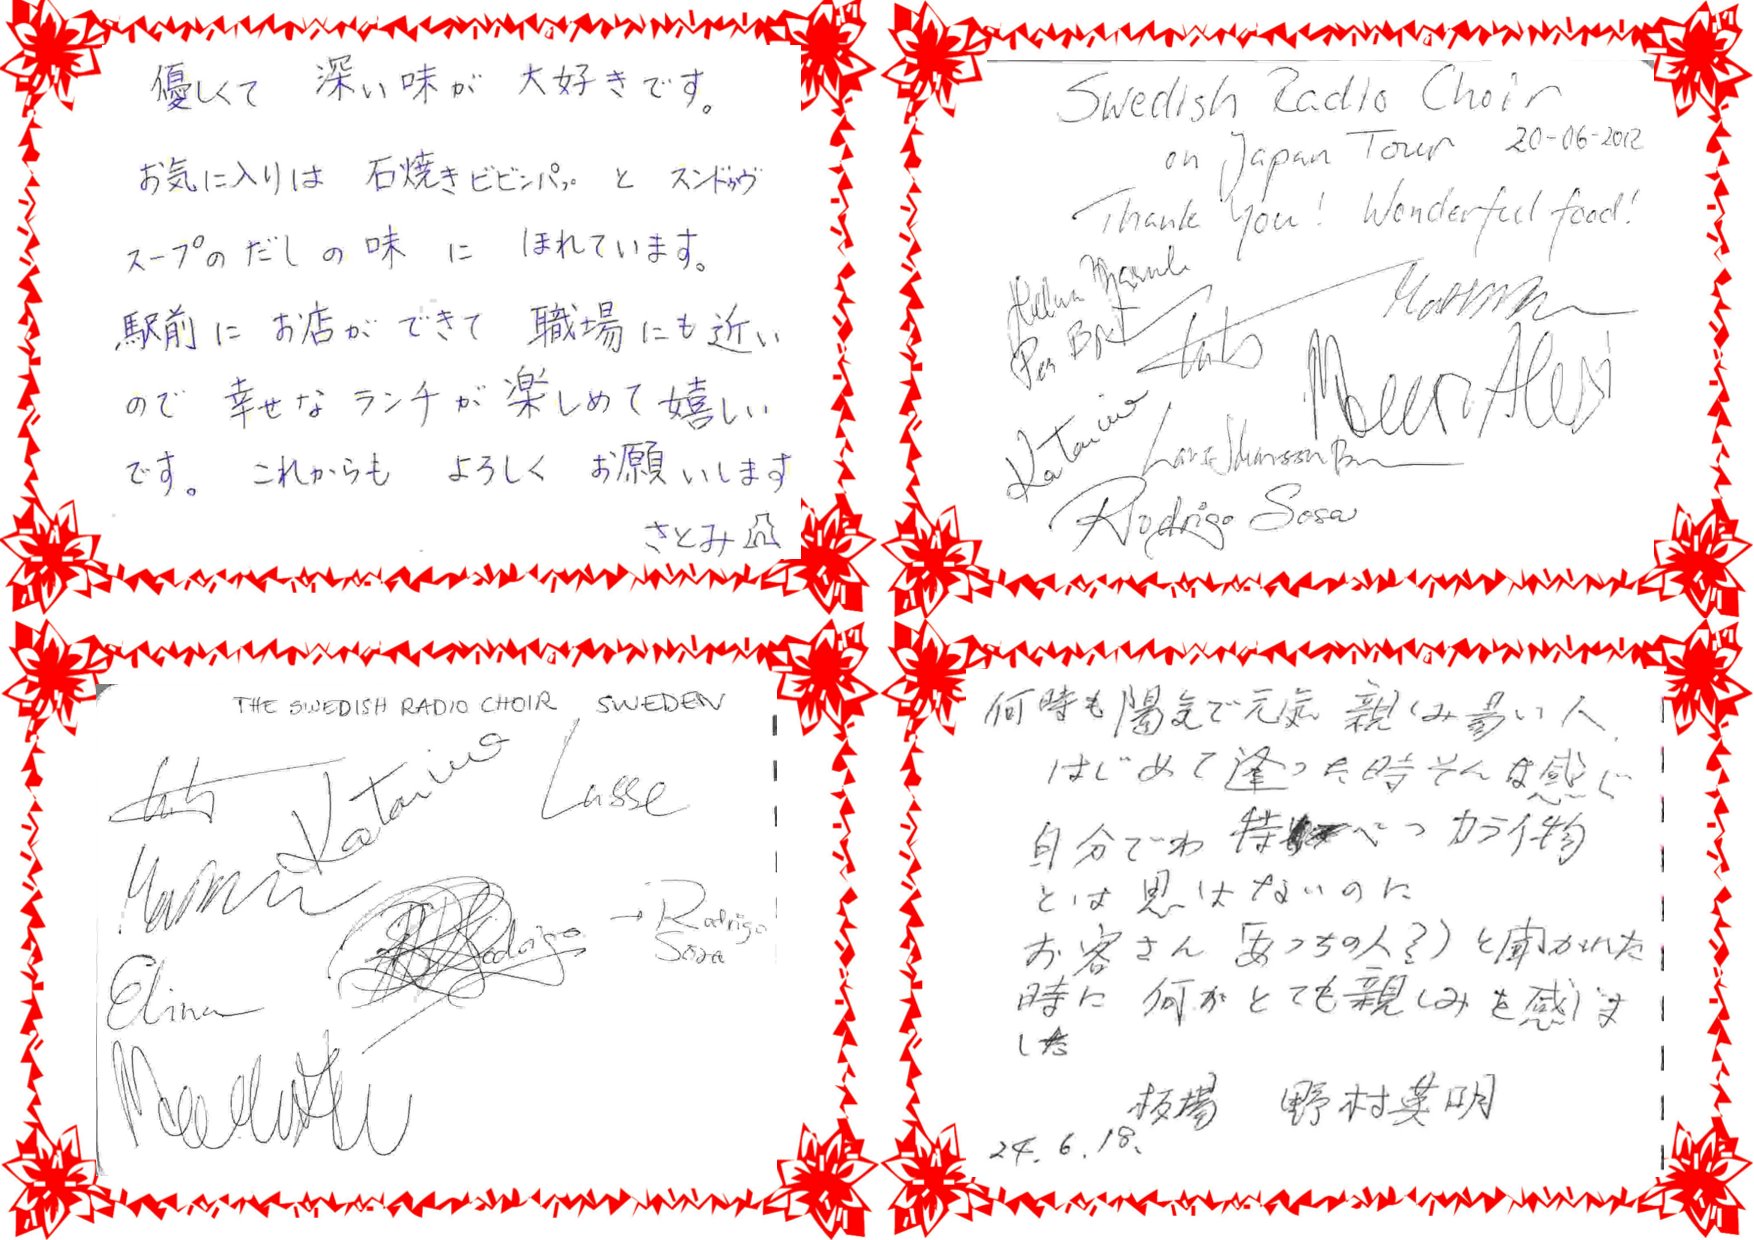 優しくて 深い味が 大好きです。
お気に入りは 石焼きビビンパップ と スンドゥヴ
スープのだしの味 に ほれています。
駅前に お店ができて 職場にも近い
ので 幸せなランチが楽しめて嬉しい
です。 これからも よろしく お願いします
さとみ
Swedish Radio Choir
on Japan Tour 20-06-2012
Thank you! Wonderful food!
Katarina
Rodrigo Sosa
THE SWEDISH RADIO CHOIR SWEDEN
Katarina
Lasse
Rodrigo
→ Rodrigo
Sosa
Elina
何時も陽気で元気 親しみ易い人
はじめて逢った時そんな感じ
自分でわ 特べつ カライ物
とは思はないのに
お客さん「あっちの人?」と聞かれた
時に 何かとても親しみを感じま
した
板場 野村英明
24.6.18.